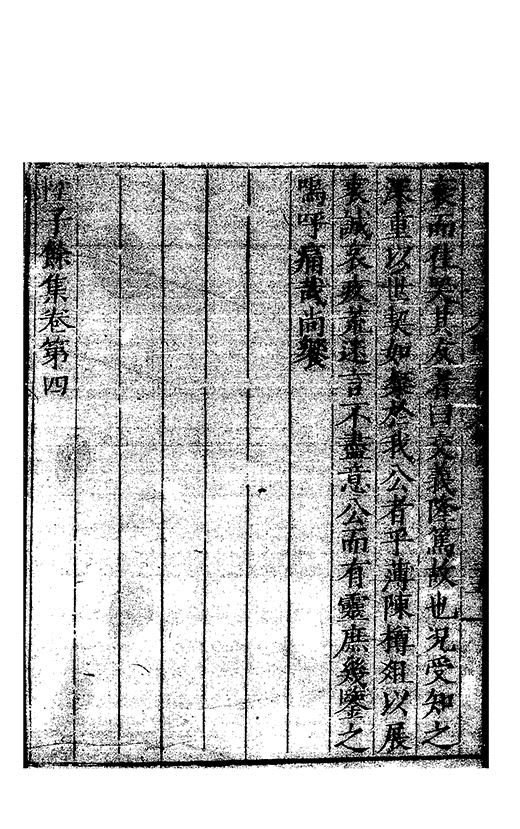 衰而往哭其友者曰交義隆篤故也況受知之
深重以世契如榘於我公者乎薄陳樽俎以展
哀誠哀疚荒迷言不盡意公而有靈庶幾鑒之
嗚呼痛哉尚饗
子餘集卷第四